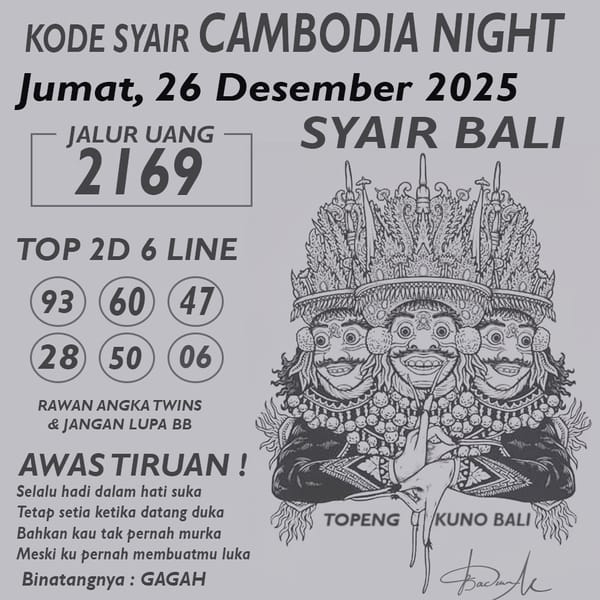 KODE SYAIR CAMBODIA NIGHT
Jumat, 26 Desember 2025
JALUR UANG
2169
SYAIR BALI
TOP 2D 6 LINE
93 60 47
28 50 06
RAWAN ANGKA TWINS
& JANGAN LUPA BB
AWAS TIRUAN !
Selalu hadi dalam hati suka
Tetap setia ketika datang duka
Bahkan kau tak pernah murka
Meski ku pernah membuatmu luka
Binatangnya : GAGAH
TOPENG KUNO BALI